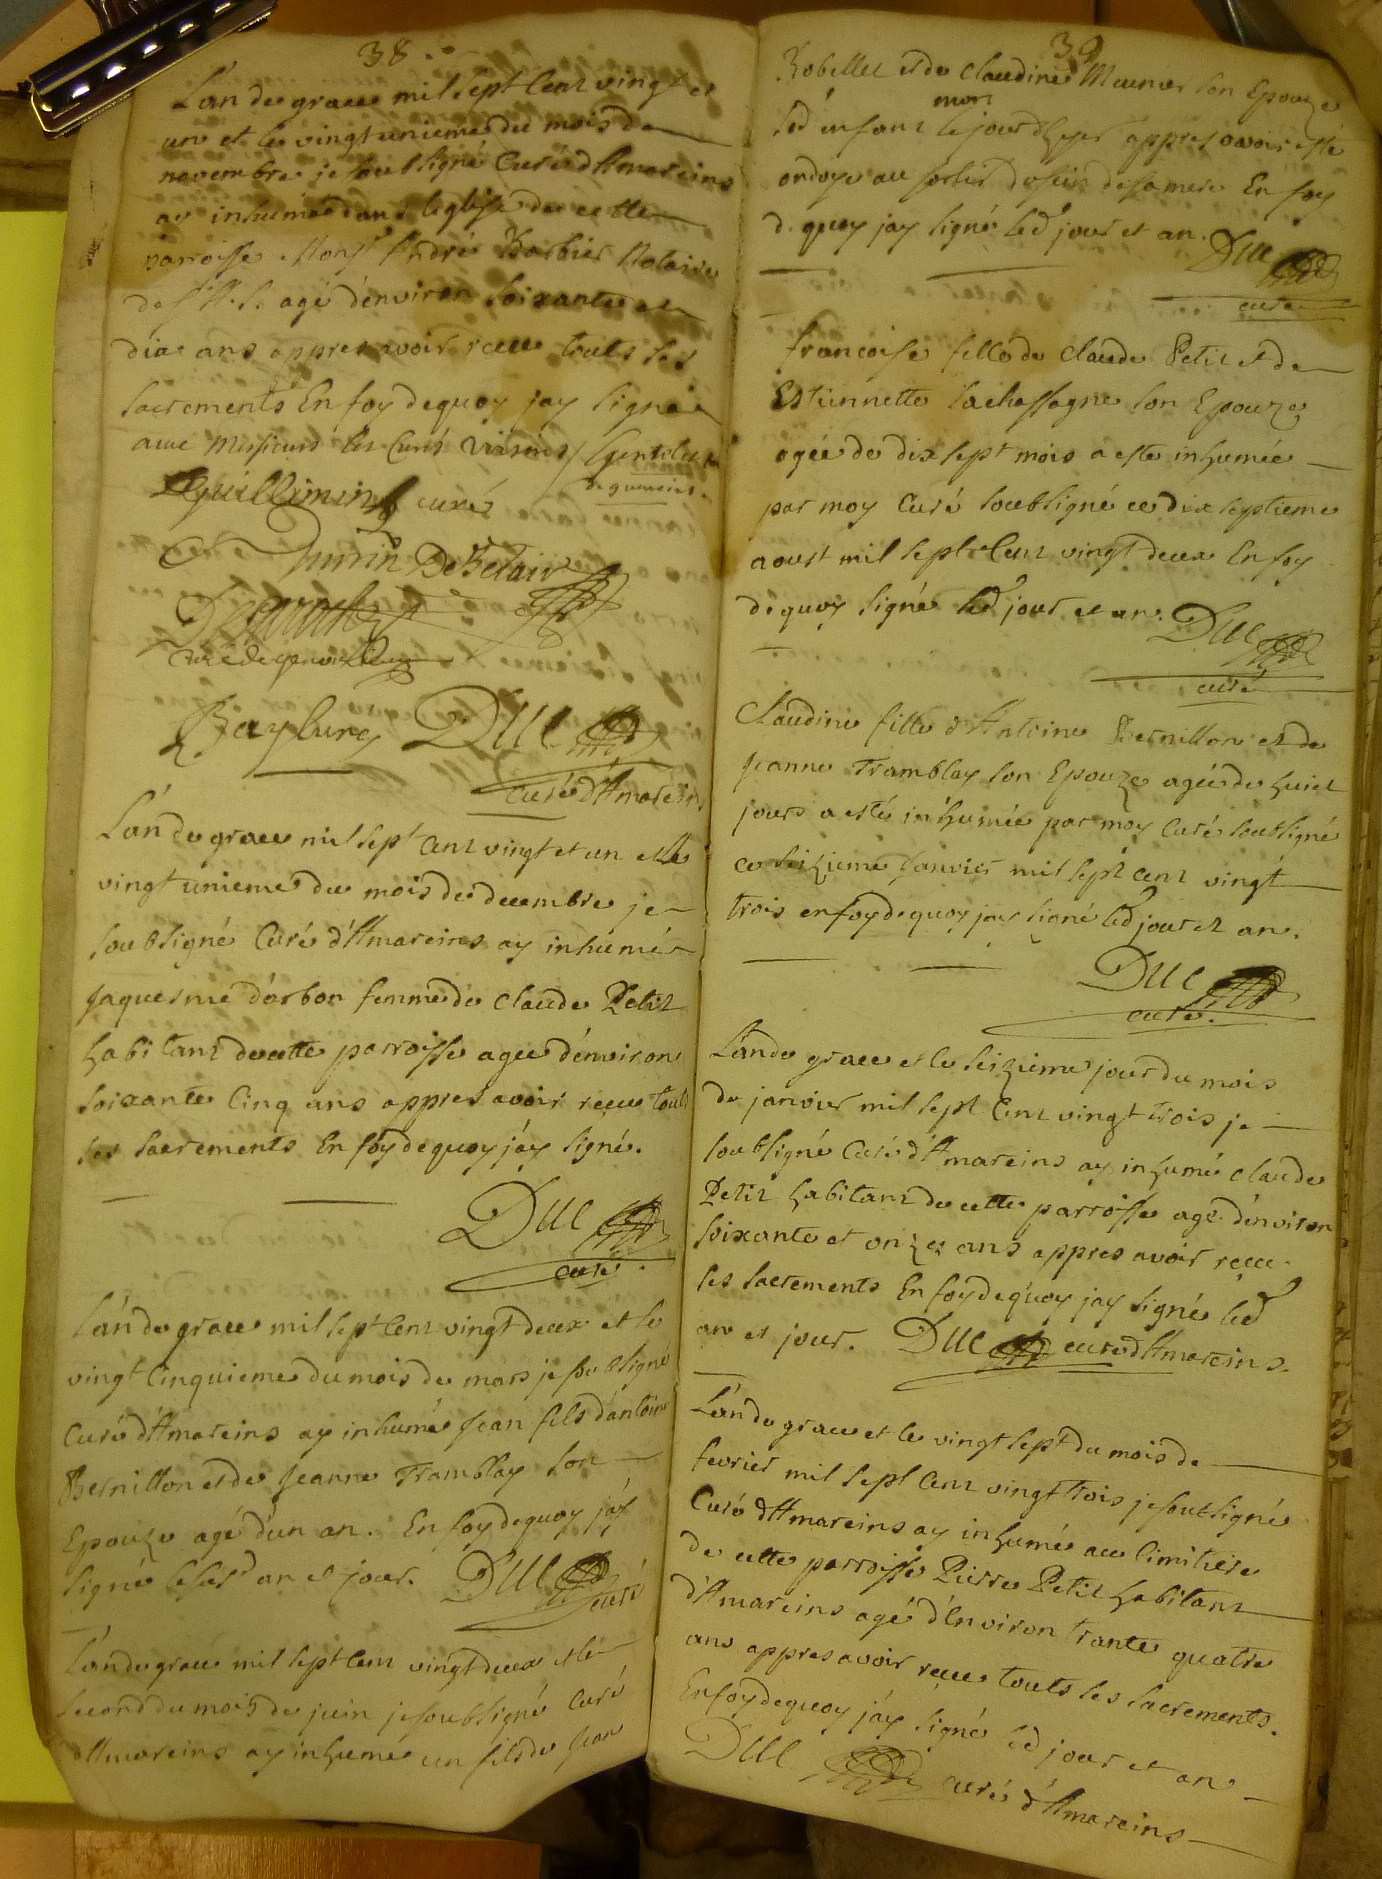 38.
Lan de grace mil sept Cent vingt et
un et le vingt unieme du mois de
novembre je soubsigné Curé d'Amareins
ay inhumé dans leglise de cette
parroisse Mons.r André Barbier Notaire
agé d'environ soixante et
dix ans appres avoir receu touts les
sacrements En foy de quoy jay signé
avec Messieurs les Curés Voisins
Guillimin curé
Durrin De Belair
curé de
Duc
curé d'Amareins
L'an de grace mil sept cent vingt et un et le
vingt unieme du mois de decembre je
soubsigné Curé d'Amareins ay inhumé
Jaquesme d'arbon femme de Claude Petit
habitant de cette parroisse agee d'environ
soixante Cinq ans appres avoir receu touts
les sacrements En foy de quoy j'ay signé.
Duc
curé.
L'an de grace mil sept Cent vingt deux et le
vingt Cinquieme du mois de mars je soubsigné
Curé d'Amareins ay inhumé Jean fils d'antoine
Bernillon et de Jeanne Tramblay son
Epouze agé d'un an. En foy de quoy j'ay
signé lesusd an et jour. Duc
curé
L'an de grace mil sept Cent vingt deux et le
second du mois de juin je soubsigné Curé
d'Amareins ay inhumé un fils de Jean
39
Robellet et de Claudine Meunier son Epouze
mort
led enfant le jour d'hyer appres avoir esté
ondoyé au sortir du sein de sa mere En foy
d. quoy jay signé led jour et an. Duc
curé
francoise fille de Claude Petit et de
Estiennette Lachassagne son Epouze
agée de dix sept mois a este inhumée
par moy Curé soubsigné ce dix septieme
aoust mil sept Cent vingt deux En foy
de quoy signé led jour et an.
Duc
curé
Claudine fille d'Antoine Bernillon et de
Jeanne Tramblay son Epouze agée de huict
jours a esté inhumée par moy Curé soubsigné
ce seizieme Janvier mil sept cent vingt
trois en foy de quoy jay signé led jour et an.
Duc
curé.
L'an de grace et le seizieme jour du mois
de janvier mil sept Cent vingt trois je
soubsigné Curé d'Amareins ay inhumé Claude
Petit habitant de cette parroisse agé d'environ
soixante et onze ans appres avoir receu
les sacrements En foy de quoy jay signé led
an et jour. Duc curé d'Amareins.
L'an de grace et le vingt sept du mois de
fevrier mil sept Cent vingt trois je soubsigné
Curé d'Amareins ay inhumé au Cimitiere
de cette parroisse Pierre Petit habitant
d'Amareins agé d'Environ trante quatre
ans appres avoir receu touts les sacrements.
En foy de quoy j'ay signé led jour et an
Duc curé d'Amareins